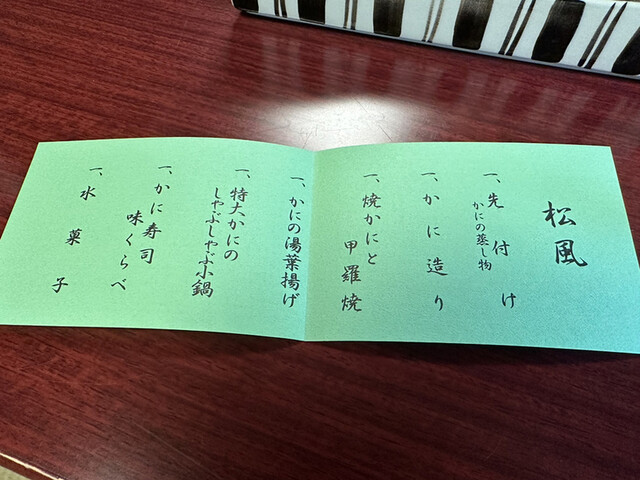 松風
一、先付け
かにの蒸し物
一、かに造り
一、焼かにと
甲羅焼
一、かにの湯葉揚げ
一、特大かにの
しゃぶしゃぶ小鍋
一、かに寿司
味くらべ
一、水菓子